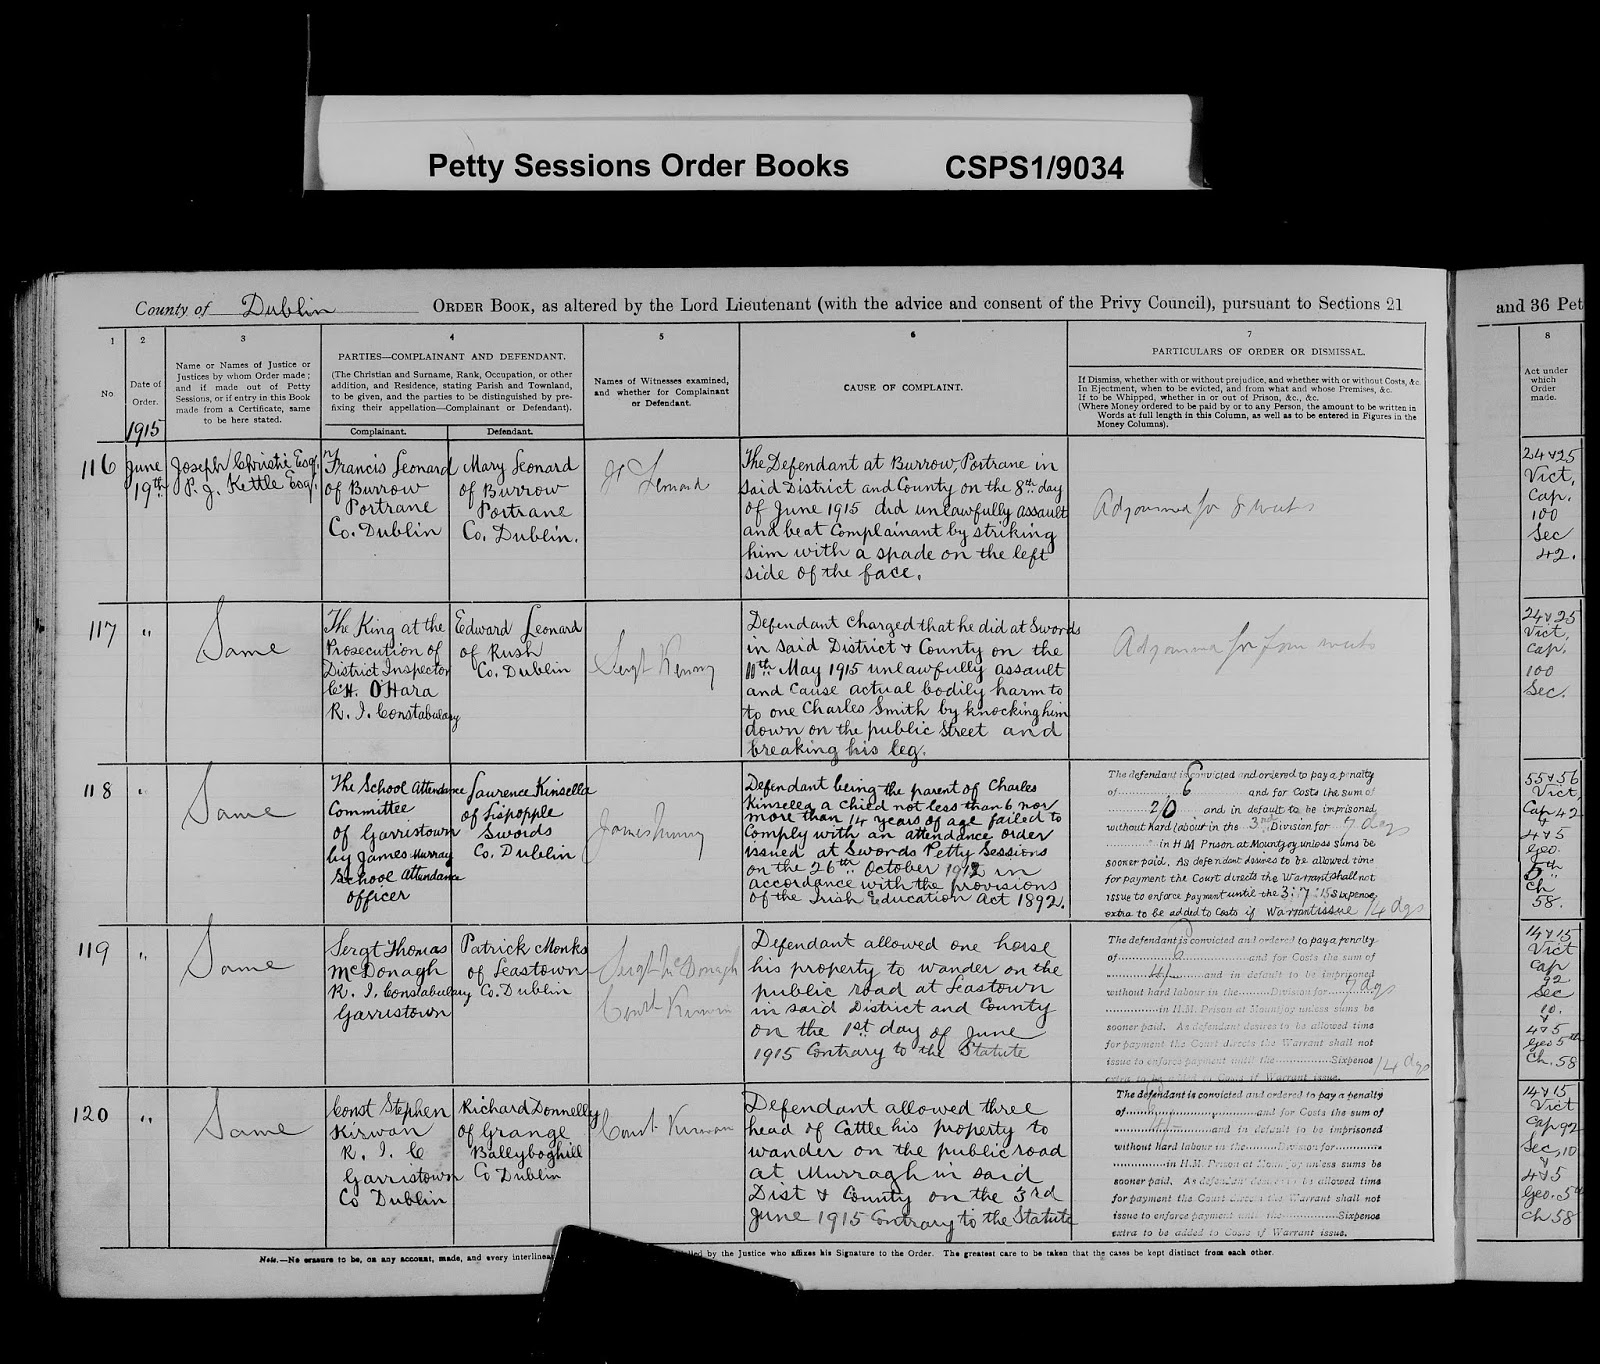 Petty Sessions Order Books CSPS1/9034
County of Dublin ORDER BOOK, as altered by the Lord Lieutenant (with the advice and consent of the Privy Council), pursuant to Sections 21
and 36 Pet
1
No
2
Date of
Order.
1915
3
Name or Names of Justice or
Justices by whom Order made;
and if made out of Petty
Sessions, or if entry in this Book
made from a Certificate, same
to be here stated.
4
PARTIES—COMPLAINANT AND DEFENDANT.
(The Christian and Surname, Rank, Occupation, or other
addition, and Residence, stating Parish and Townland,
to be given, and the parties to be distinguished by pre-
fixing their appellation—Complainant or Defendant).
Complainant.
Defendant.
5
Names of Witnesses examined,
and whether for Complainant
or Defendant.
6
CAUSE OF COMPLAINT.
7
PARTICULARS OF ORDER OR DISMISSAL.
If Dismiss, whether with or without prejudice, and whether with or without Costs, &c.
In Ejectment, when to be evicted, and from what and whose Premises, &c.
If to be Whipped, whether in or out of Prison, &c., &c.
(Where Money ordered to be paid by or to any Person, the amount to be written in
Words at full length in this Column, as well as to be entered in Figures in the
Money Columns).
8
Act under
which
Order
made.
116
June
19th
Joseph Christie Esq.
P. J. Kettle Esq.
Francis Leonard
of Burrow
Portrane
Co. Dublin
Mary Leonard
of Burrow
Portrane
Co. Dublin.
Leonard
The Defendant at Burrow, Portrane in
said District and County on the 8th day
of June 1915 did unlawfully assault
and beat Complainant by striking
him with a spade on the left
side of the face.
Adjourned for 8 weeks
24 & 25
Vict.
Cap.
100
Sec
42.
117
"
Same
The King at the
Prosecution of
District Inspector
C.H. O'Hara
R. I. Constabulary
Edward Leonard
of Rush
Co. Dublin
Sergt Kenny
Defendant charged that he did at Swords
in said District & County on the
10th May 1915 unlawfully assault
and cause actual bodily harm to
to one Charles Smith by knocking him
down on the public street and
breaking his leg.
Adjourned for four weeks
24 & 25
Vict.
Cap.
100
Sec.
118
"
Same
The School Attendance
Committee
of Garristown
by James Murray
School Attendance
Officer
Laurence Kinsella
of Lispopple
Swords
Co. Dublin
James
Defendant being the parent of Charles
Kinsella a child not less than 6 nor
more than 14 years of age failed to
comply with an attendance order
issued at Swords Petty Sessions
on the 26th October 1912 in
accordance with the provisions
of the Irish Education Act 1892.
The defendant is convicted and ordered to pay a penalty
of 6 and for Costs the sum of
2/0 and in default to be imprisoned
without hard labour in the 3rd Division for 7 dgs
in H M Prison at Mountjoy unless sums be
sooner paid. As defendant desires to be allowed time
for payment the Court directs the Warrant shall not
issue to enforce payment until the 3:7:15 Sixpence
extra to be added to Costs if Warrant issue 14 dgs
55 & 56
Vict
Cap 42
&
4 & 5
Geo.
5th
Ch
58.
119
"
Same
Sergt Thomas
McDonagh
R. I. Constabulary
Garristown
Patrick Monks
of Leastown
Co. Dublin
Sergt McDonagh
Const Kirwan
Defendant allowed one horse
his property to wander on the
public road at Leastown
in said District and County
on the 1st day of June
1915 Contrary to the Statute
The defendant is convicted and ordered to pay a penalty
of 6 and for Costs the sum of
and in default to be imprisoned
without hard labour in the Division for 7 dgs
in H.M. Prison at Mountjoy unless sums be
sooner paid. As defendant desires to be allowed time
for payment the Court directs the Warrant shall not
issue to enforce payment until the Sixpence
extra to be added to Costs if Warrant issue. 14 dgs
14 & 15
Vict
Cap
92
Sec
10.
&
4 & 5
Geo 5th
Ch. 58
120
"
Same
Const Stephen
Kirwan
R. I. C
Garristown
Co Dublin
Richard Donnelly
of Grange
Ballyboghill
Co Dublin
Const Kirwan
Defendant allowed three
head of Cattle his property to
wander on the public road
at Murragh in said
Dist & County on the 3rd
June 1915 Contrary to the Statute
The defendant is convicted and ordered to pay a penalty
of and for Costs the sum of
and in default to be imprisoned
without hard labour in the Division for
in H.M. Prison at Mountjoy unless sums be
sooner paid. As defendant desires to be allowed time
for payment the Court directs the Warrant shall not
issue to enforce payment until the Sixpence
extra to be added to Costs if Warrant issue.
14 & 15
Vict
Cap 92
Sec. 10
&
4 & 5
Geo. 5th
Ch 58
Note.—No erasure to be, on any account, made, and every interlinea led by the Justice who affixes his Signature to the Order. The greatest care to be taken that the cases be kept distinct from each other.